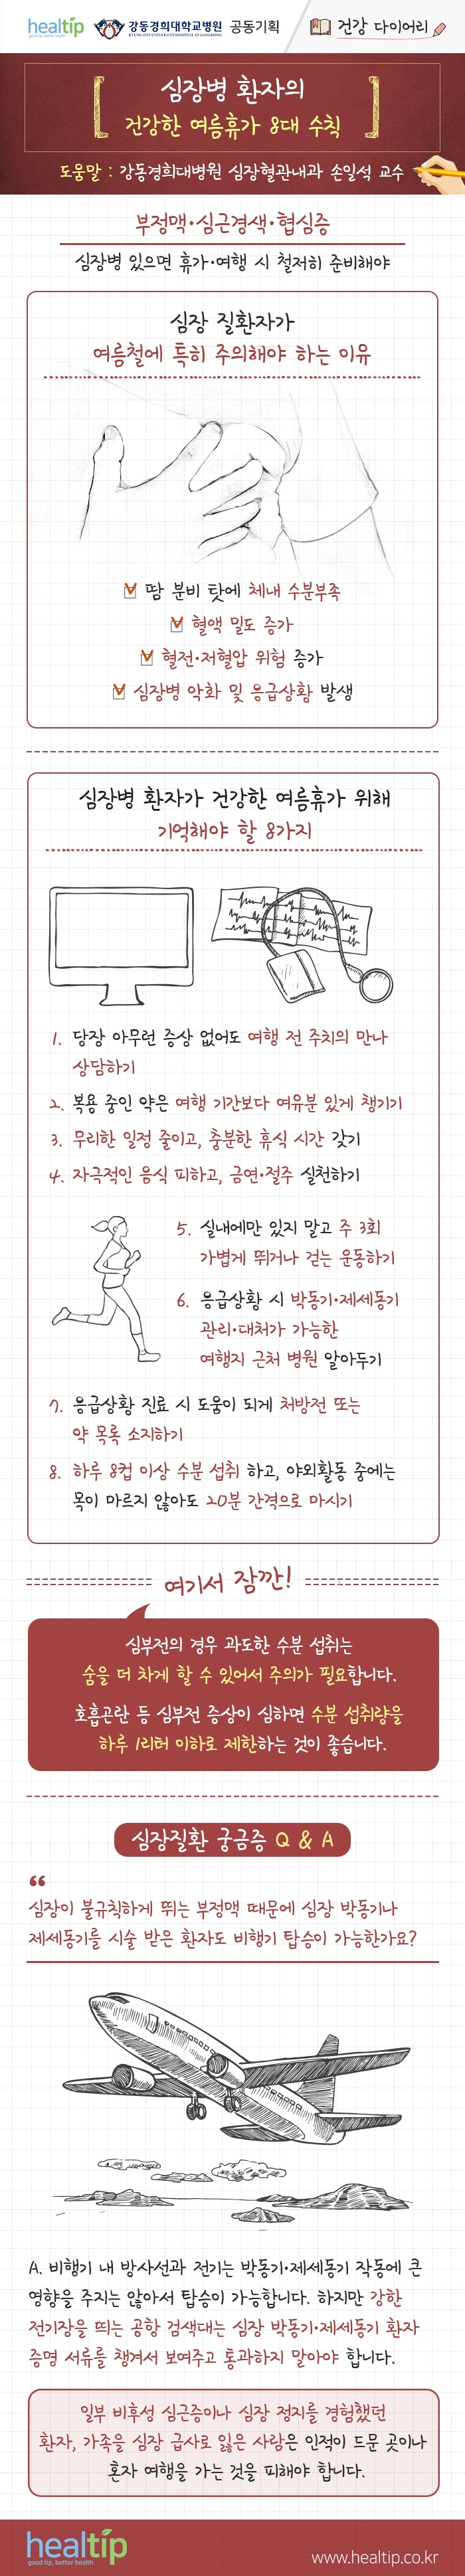 healtip
good tip, better health
강동경희대학교병원 공동기획
KYUNG HEE UNIVERSITY HOSPITAL AT GANGDONG
건강 다이어리
심장병 환자의
건강한 여름휴가 8대 수칙
도움말 : 강동경희대병원 심장혈관내과 손일석 교수
부정맥·심근경색·협심증
심장병 있으면 휴가·여행 시 철저히 준비해야
심장 질환자가
여름철에 특히 주의해야 하는 이유
땀 분비 탓에 체내 수분부족
혈액 밀도 증가
혈전·저혈압 위험 증가
심장병 악화 및 응급상황 발생
심장병 환자가 건강한 여름휴가 위해
기억해야 할 8가지
1. 당장 아무런 증상 없어도 여행 전 주치의 만나
상담하기
2. 복용 중인 약은 여행 기간보다 여유분 있게 챙기기
3. 무리한 일정 줄이고, 충분한 휴식 시간 갖기
4. 자극적인 음식 피하고, 금연·절주 실천하기
5. 실내에만 있지 말고 주 3회
가볍게 뛰거나 걷는 운동하기
6. 응급상황 시 박동기·제세동기
관리·대처가 가능한
여행지 근처 병원 알아두기
7. 응급상황 진료 시 도움이 되게 처방전 또는
약 목록 소지하기
8. 하루 8컵 이상 수분 섭취 하고, 야외활동 중에는
목이 마르지 않아도 20분 간격으로 마시기
여기서 잠깐!
심부전의 경우 과도한 수분 섭취는
숨을 더 차게 할 수 있어서 주의가 필요합니다.
호흡곤란 등 심부전 증상이 심하면 수분 섭취량을
하루 1리터 이하로 제한하는 것이 좋습니다.
심장질환 궁금증 Q & A
“
심장이 불규칙하게 뛰는 부정맥 때문에 심장 박동기나
제세동기를 시술 받은 환자도 비행기 탑승이 가능한가요?
A. 비행기 내 방사선과 전기는 박동기·제세동기 작동에 큰
영향을 주지는 않아서 탑승이 가능합니다. 하지만 강한
전기장을 띄는 공항 검색대는 심장 박동기·제세동기 환자
증명 서류를 챙겨서 보여주고 통과하지 말아야 합니다.
일부 비후성 심근증이나 심장 정지를 경험했던
환자, 가족을 심장 급사로 잃은 사람은 인적이 드문 곳이나
혼자 여행을 가는 것을 피해야 합니다.
healtip
good tip, better health
www.healtip.co.kr